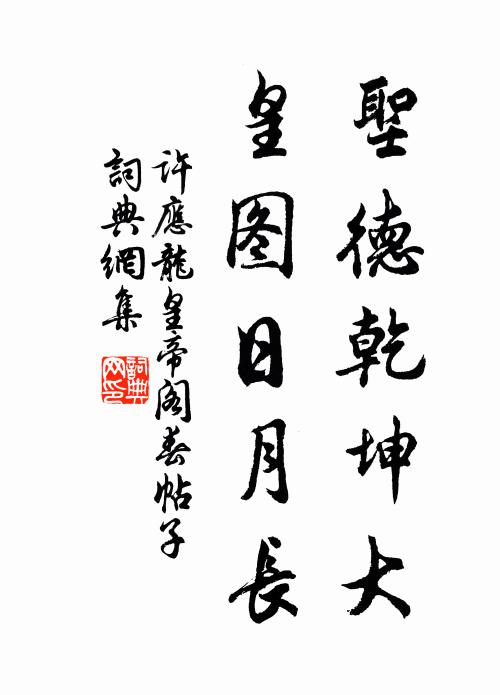 聖德乾坤大
皇图日月長
許應龍皇帝阁春帖子
詞典網集
詞典
网印